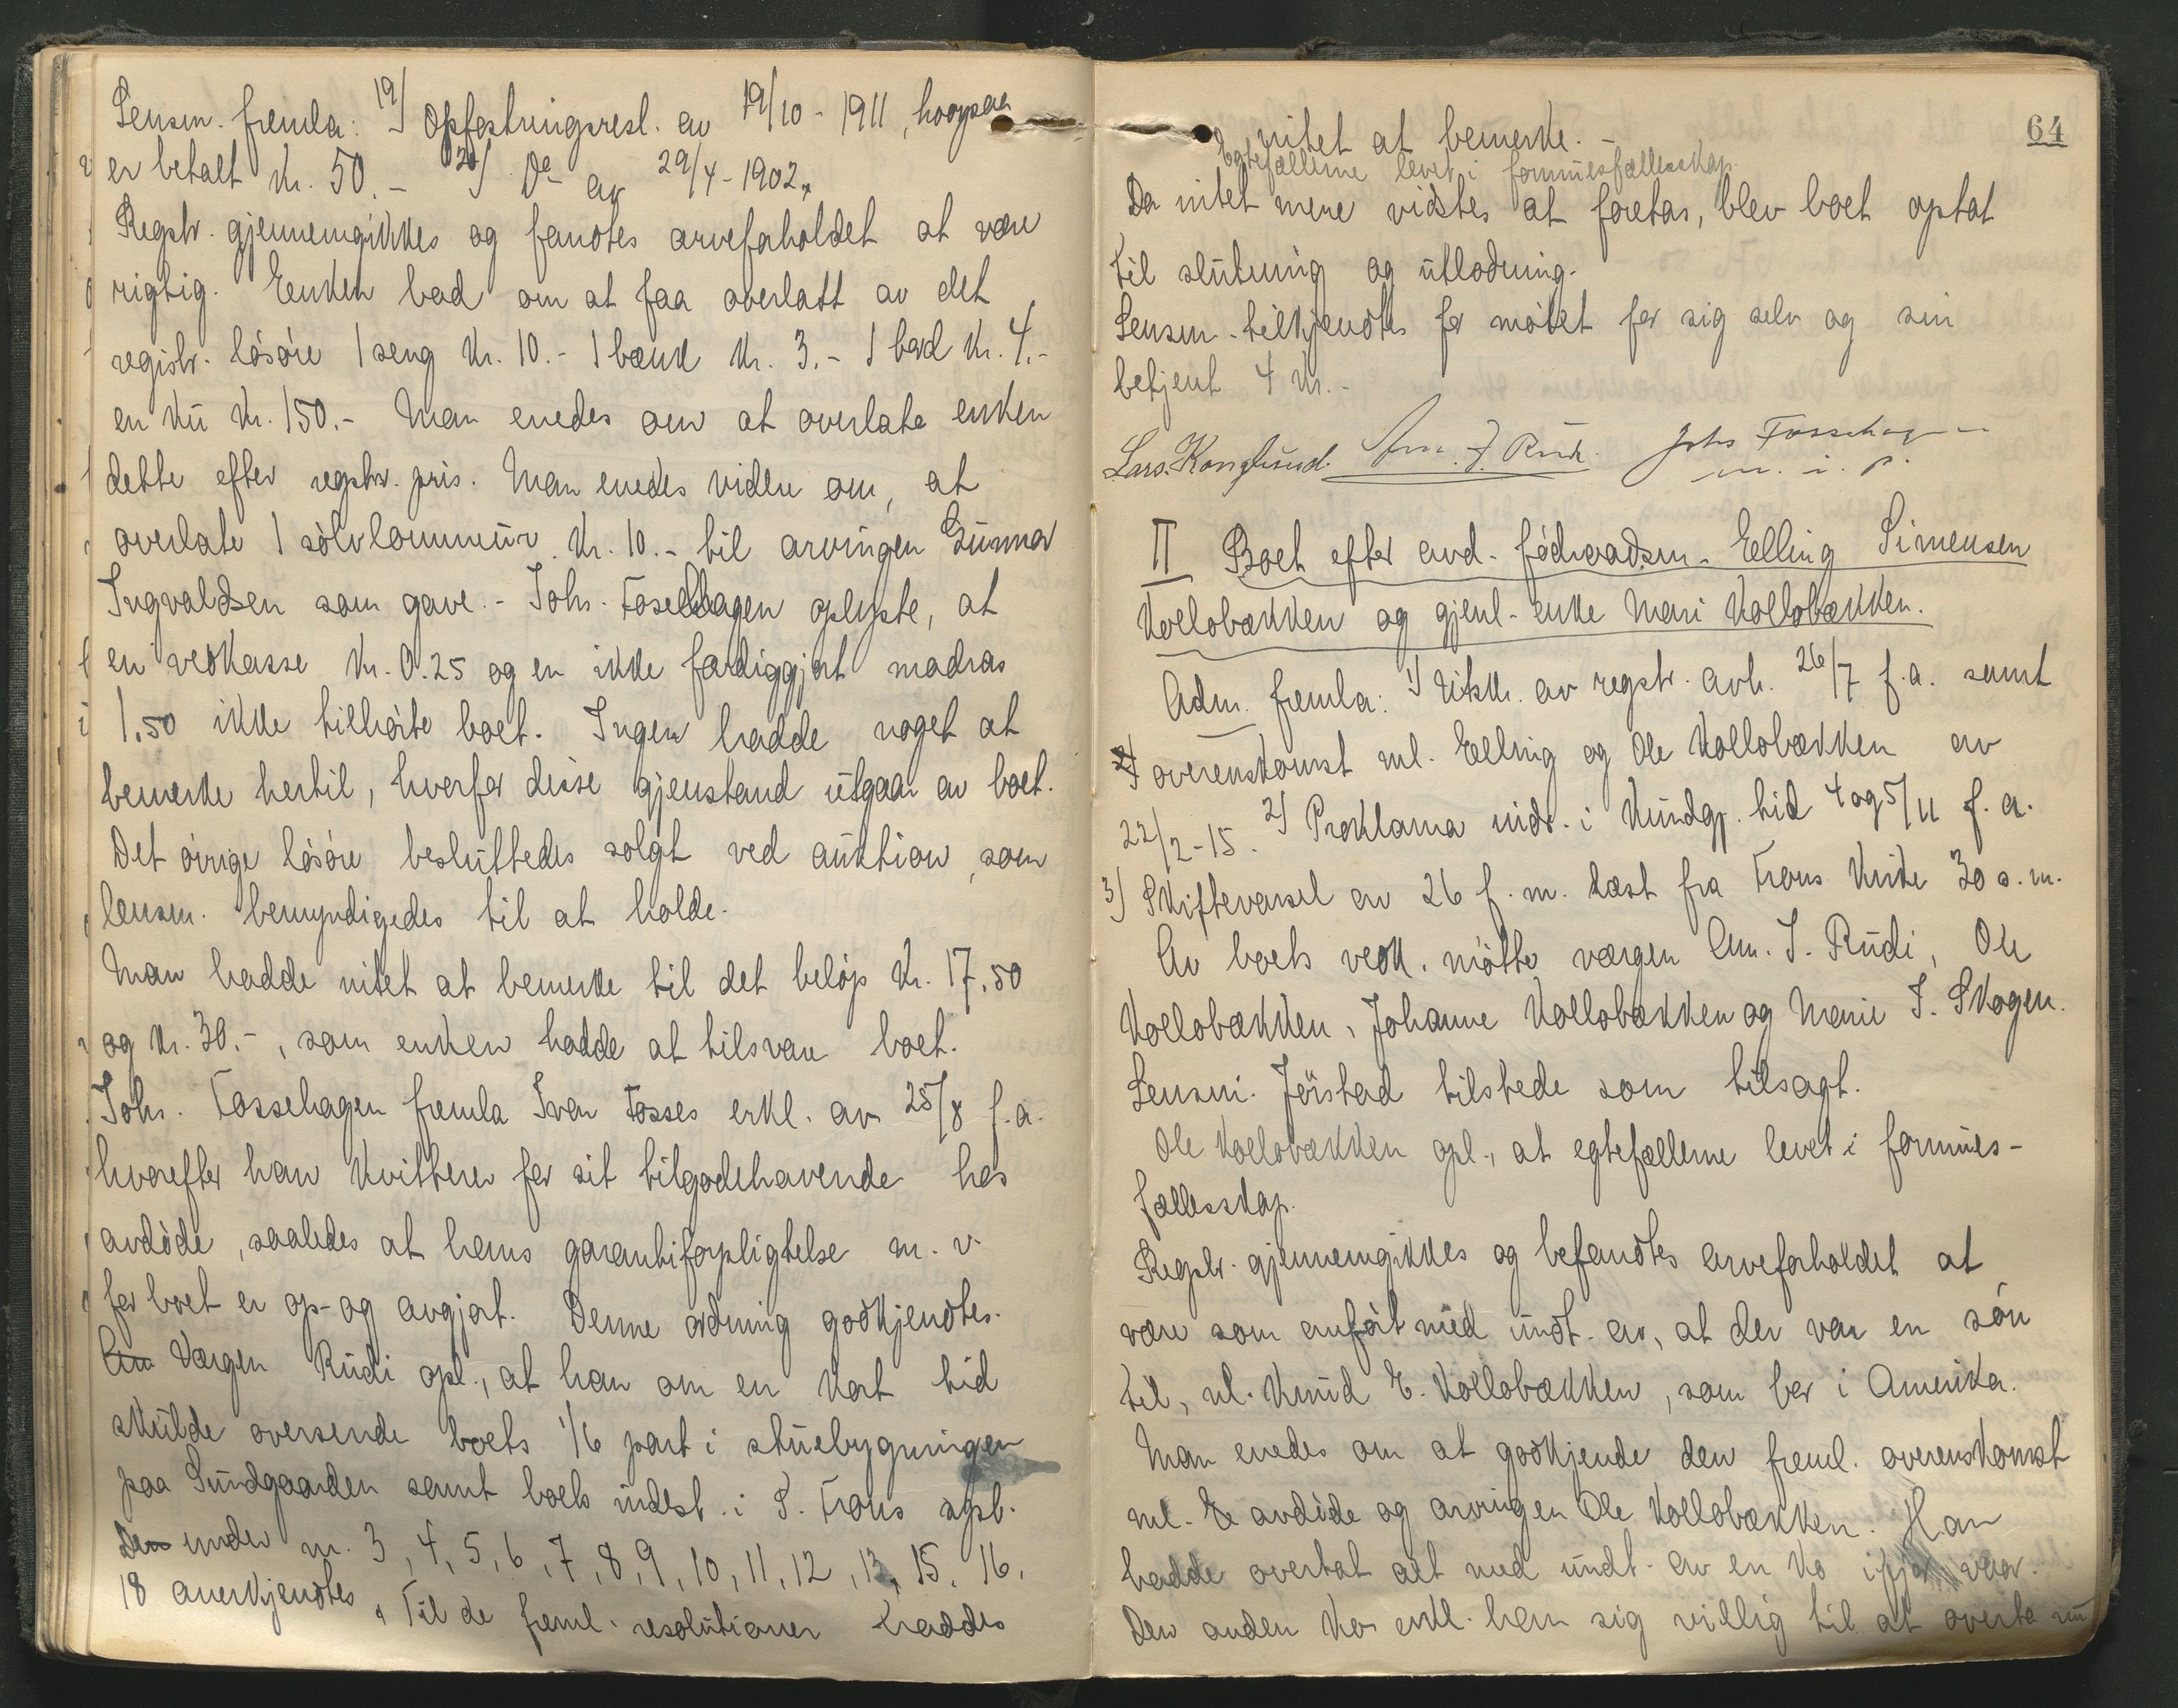 Lensm. fremla: 19) Opfostringsresl. av 19/10 - 1911, hvorpaa
er betalt kr. 50.- 20) Do av 29/4 - 1902.
Regstr. gjennemgikkes og fandtes arveforholdet at være
rigtig. Enken bad om at faa overlatt av det
registr. løsøre 1 seng kr. 10.- 1 bænk kr. 3.- 1 bord kr. 4.-
en ku kr. 150.- Man enedes om at overlate enken
dette efter regstr. pris. Man enedes videre om, at
overlate 1 sølvlommeur kr. 10.- til arvingen Gunnar
Ingvaldsen som gave.- Johs. Fossehagen oplyste, at
en vedkasse kr. 0.25 og en ikke færdiggjort madras
1.50 ikke tilhørte boet. Ingen hadde noget at
bemerke hertil, hvorfor disse gjenstand utgaar av boet.
Det øvrige løsøre besluttedes solgt ved auktion, som
lensm. bemyndigedes til at holde.
Man hadde intet at bemerke til det beløp kr. 17.50
og kr. 30.-, som enken hadde at tilsvare boet.
Johs. Fossehagen fremla Ivar Fosses erkl. av 25/8 f.a.
hvorefter han kvitterer for sit tilgodehavende hos
avdøde, saaledes at hans garantiforpligtelse m.v.
for boet er op- og avgjort. Denne ordning godkjendtes.
Am Værgen Rudi opl., at han om en kort tid
skulde oversende boets 1/6 part i stuebygningen
paa Sundgaarden samt boets indest. i S. Frons spb.
Den under nr. 3, 4, 5, 6, 7, 8, 9, 10, 11, 12, 13, 15, 16,
18 anerkjendtes. Til de freml. resolutioner haddes
64
intet at bemerke.-
Egtefællerne levet i formuesfællesskap.
Da intet mere vidstes at foretas, blev boet optat
til slutning og utlodning.
Lensm. tilkjendtes for møtet for sig selv og sin
betjent 4 kr.-
Lars Konglund. Am. J. Rudi. Johs Fossehagen
m. i. p.
II Boet efter avd. fødraadsm. Elling Simensen
Kollobækken og gjenl. enke Mari Kollobækken.
Adm. fremla: 1) Utskr. av regstr. avh. 26/7 f.a. samt
2) overenskomst ml. Elling og Ole Kollobækken av
22/2-15. 2) Proklama indr. i Kundgj. tid 4 og 5/11 f.a.
3) Skiftevarsel av 26 f.m. læst fra Frons kirke 30 s.m.
Av boets vedk. møtte værgen Am. J. Rudi, Ole
Kollobækken, Johanne Kollobækken og Marie J. Skogen.
Lensm. Jørstad tilstede som tilsagt.
Ole Kollobækken opl., at egtefællerne levet i formues-
fællesskap.
Regstr. gjennemgikkes og befandtes arveforholdet at
være som anført med undt. av, at der var en søn
til, nl. Knud E. Kollobækken, som bor i Amerika.
Man enedes om at godkjende den freml. overenskomst
ml. E avdøde og arvingen Ole Kollobækken. Han
hadde overtat alt med undt. av en ko ifjor vaar.
Den anden ko erkl. han sig villig til at overta nu